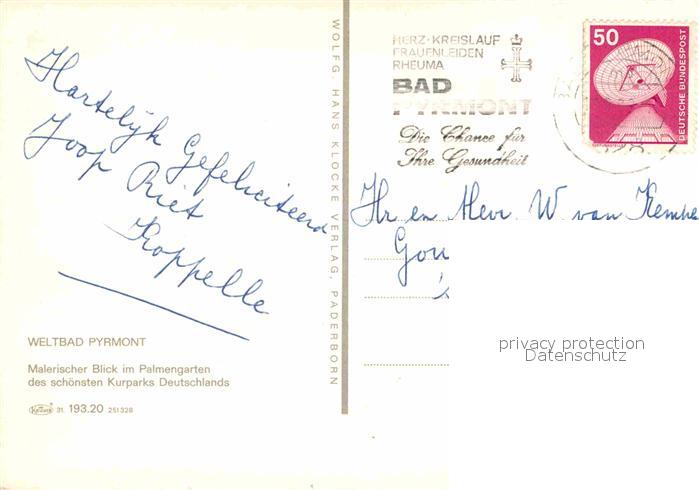 Hartelijk Gefeliciteerd
Joop Riet
Koppelle
WELTBAD PYRMONT
Malerischer Blick im Palmengarten
des schönsten Kurparks Deutschlands
Krüger 31. 193.20 251328
WOLFG. HANS KLOCKE VERLAG, PADERBORN
HERZ-KREISLAUF
FRAUENLEIDEN
RHEUMA
BAD
PYRMONT
Die Chance für
Ihre Gesundheit
50
DEUTSCHE BUNDESPOST
Hr en Mevr W van Kempe
Gou
privacy protection
Datenschutz